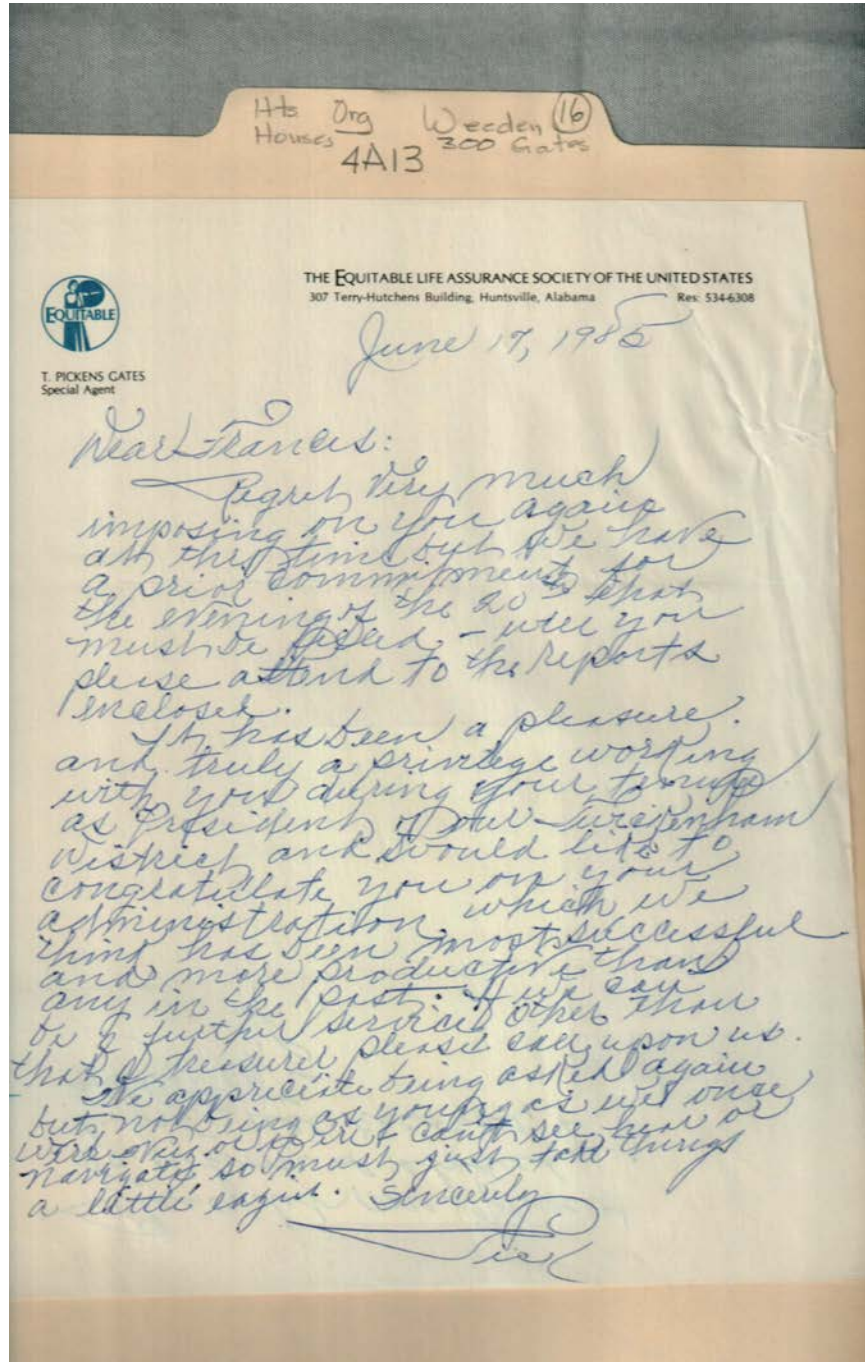 Hts Org Weeden 16
Houses 300 Gates
4A13
THE EQUITABLE LIFE ASSURANCE SOCIETY OF THE UNITED STATES
307 Terry-Hutchens Building, Huntsville, Alabama Res: 534-6308
EQUITABLE
June 17, 1985
T. PICKENS GATES
Special Agent
Dear Frances:
Regret very much
imposing on you again
at this time but we have
a prior commitment for
the evening of the 20th that
must be - will you
please attend to the reports
enclosed.
It has been a pleasure
and truly a privilege working
with you during your tenure
as President of our Twickenham
District and would like to
congratulate you on your
administration, which we
think has been most successful
and more productive than
any in the past. If we can
be of further service other than
that of treasurer please call upon us.
We appreciate being asked again
but not being as young as we once
were can't see hear or
navigate so must just take things
a little easier. Sincerely
Pick